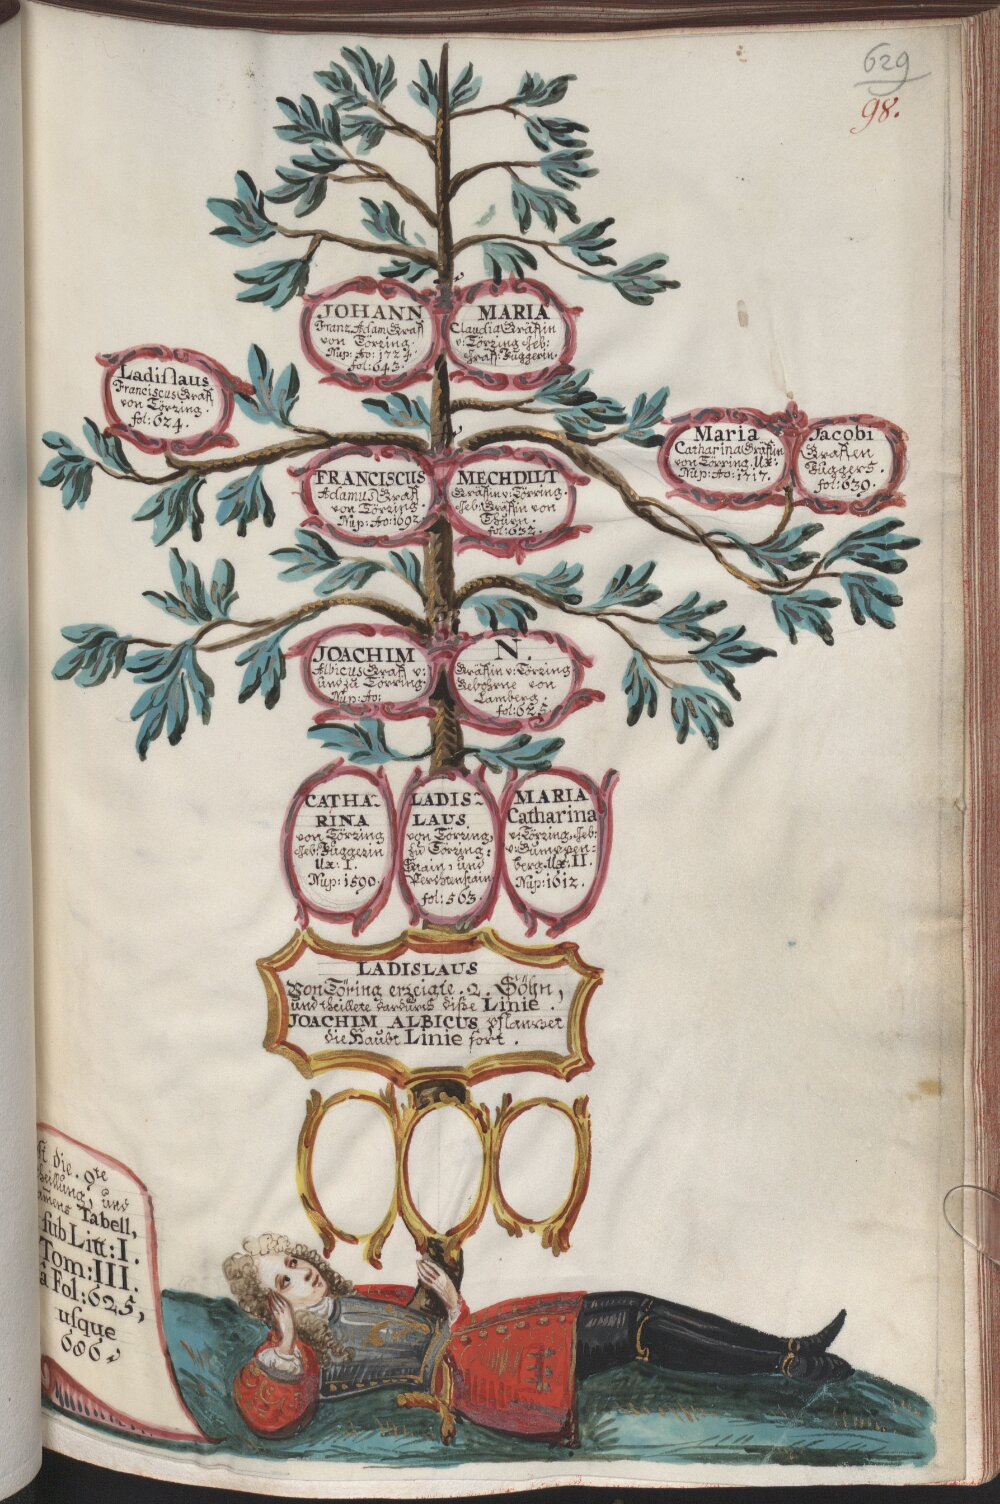 629
98.
JOHANN
Franz Adam Graff
von Törring.
Nup: Ao: 1724.
fol: 643.
MARIA
Claudia Gräffin
v: Törring Geb:
Graff: Fuggerin.
Ladislaus
Franciscus Graff
von Törring.
fol: 624.
Maria
Catharina Gräffin
von Törring. Ux:
Nup: Ao: 1717.
Jacobi
Graffen
Fuggers.
fol: 639.
FRANCISCUS
Adamus Graff
von Törring.
Nup: Ao: 1692
MECHDILT
Gräffin v: Törring.
Geb: Gräffin von
Thurn.
fol: 632.
JOACHIM
Albicus Graff v:
und zu Törring.
Nup: Ao:
N.
Gräffin v: Törring
Gebohrne von
Lamberg.
fol: 625.
CATHA-
RINA
von Törring
Geb: Fuggerin
Ux: I.
Nup: 1590.
LADIS-
LAUS
von Törring,
zu Törring,
Stain, und
Pertenstain
fol: 563.
MARIA
Catharina
v: Törring, Geb:
v: Gumppen-
berg. Ux: II.
Nup: 1612.
LADISLAUS
Von Töring erzeigte .2. Söhn,
und theillete dardurch dise Linie.
JOACHIM ALBICUS pflanzet
die Haubt Linie fort.
die .9te
und
Tabell,
sub Litt: I.
Tom: III.
à Fol: 625,
usque
686,